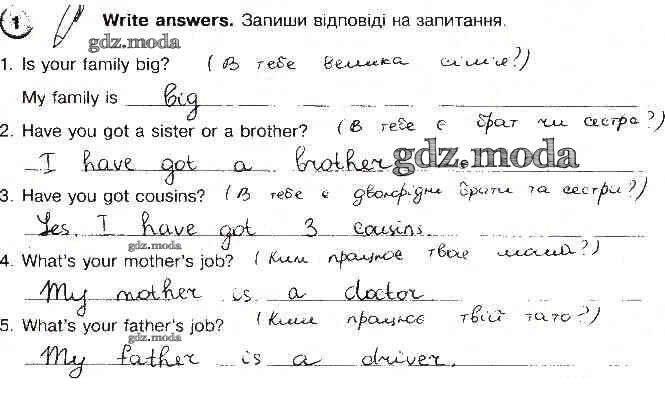 1 Write answers. Запиши відповіді на запитання.
gdz.moda
1. Is your family big? (В тебе велика сім'я?)
My family is big
2. Have you got a sister or a brother? (В тебе є брат чи сестра?)
I have got a brother. gdz.moda
3. Have you got cousins? (В тебе є двоюрідні брати та сестри?)
Yes. I have got 3 cousins.
gdz.moda
4. What's your mother's job? (Ким працює твоя мама?)
My mother is a doctor.
gdz.moda
5. What's your father's job? (Ким працює твій тато?)
gdz.moda
My father is a driver.